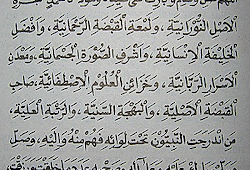 الْأَصْلِ النُّورَانِيَّةِ، وَلَمْعَةِ الْقَبْضَةِ الرَّحْمَانِيَّةِ، وَأَفْضَلِ
الْخَلِيقَةِ الْإِنْسَانِيَّةِ، وَأَشْرَفِ الصُّورَةِ الْجِسْمَانِيَّةِ، وَمَعْدَنِ
الْأَسْرَارِ الرَّبَّانِيَّةِ، وَخَزَائِنِ الْعُلُومِ الْإِصْطِفَائِيَّةِ، صَاحِبِ
الْقَبْضَةِ الْأَصْلِيَّةِ، وَالْبَهْجَةِ السَّنِيَّةِ، وَالرُّتْبَةِ الْعَلِيَّةِ،
مَنِ انْدَرَجَتِ النَّبِيُّونَ تَحْتَ لِوَائِهِ فَهُمْ مِنْهُ وَإِلَيْهِ، وَصَلِّ